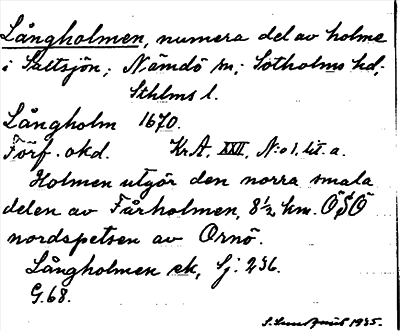 Långholmen, numera del av holme
i Saltsjön; Nämdö sn; Sotholms hd;
Sthlms l.
Långholm 1670.
Förf. okd. Kr.A. XXII, N:o 1, lit. a.
Holmen utgör den norra smala
delen av Fårholmen, 8½ km. ÖSÖ
nordspetsen av Ornö.
Långholmen ek, Sj: 236.
G. 68.
S. Lundquist 1935.